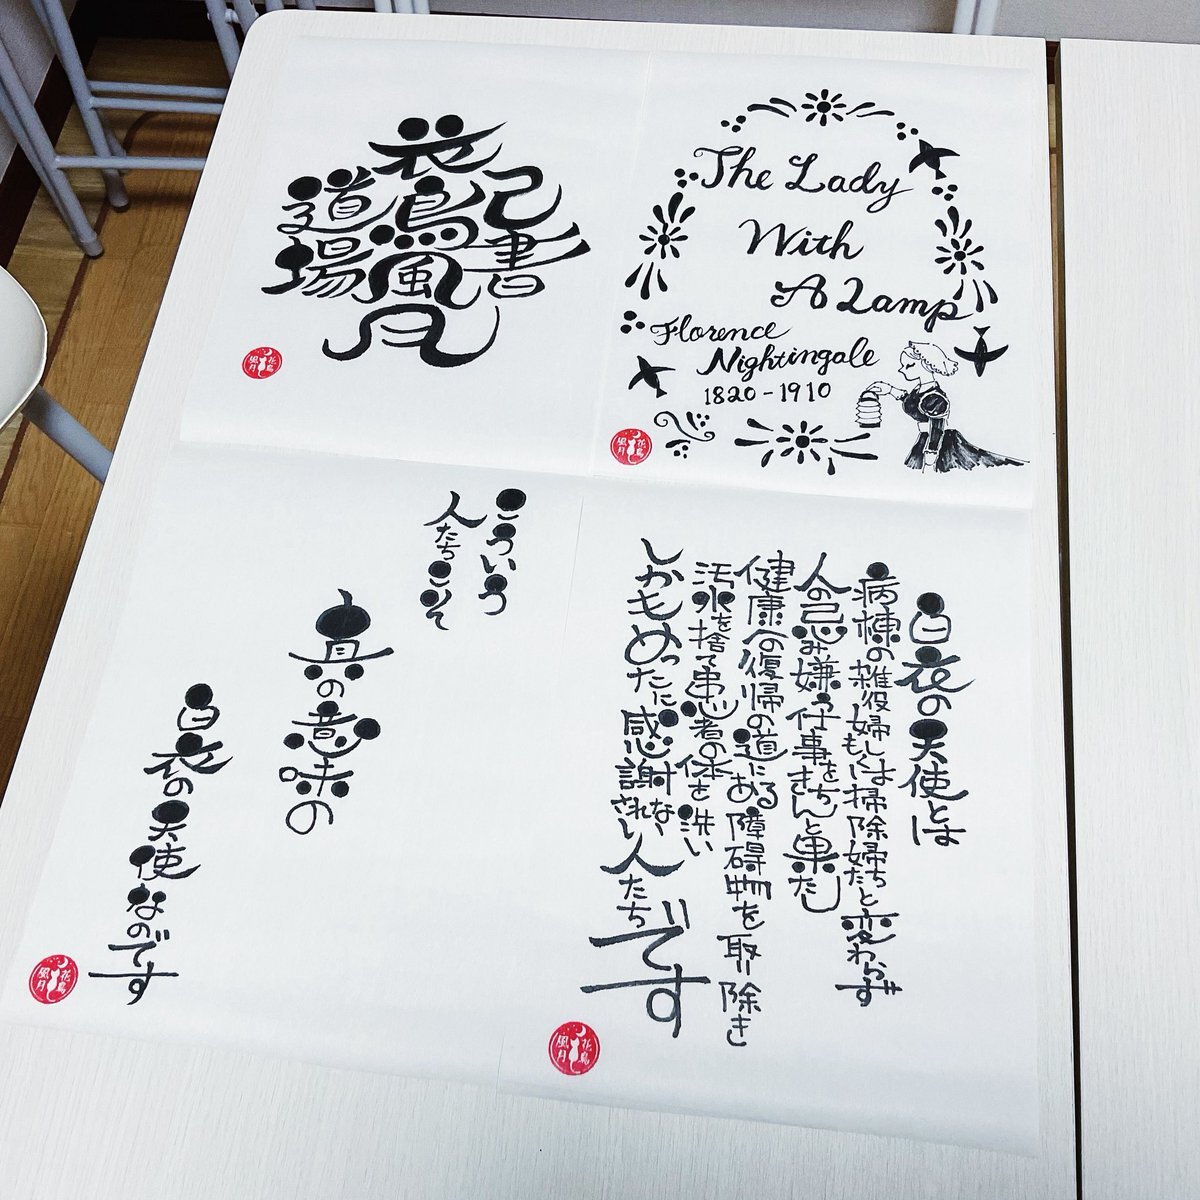 己書
花鳥風月
道場
花鳥
風月
The Lady
With
A Lamp
Florence
Nightingale
1820-1910
花鳥
風月
白衣の天使とは
病棟の雑役婦もしくは掃除婦たちと変わらず
人の忌み嫌う仕事をきちんと果たし
健康への復帰の道にある障碍物を取り除き
汚水を捨て患者の体を洗い
しかもめったに感謝されない人たちです
花鳥
風月
こういう
人たちこそ
真の意味の
白衣の天使なのです
花鳥
風月